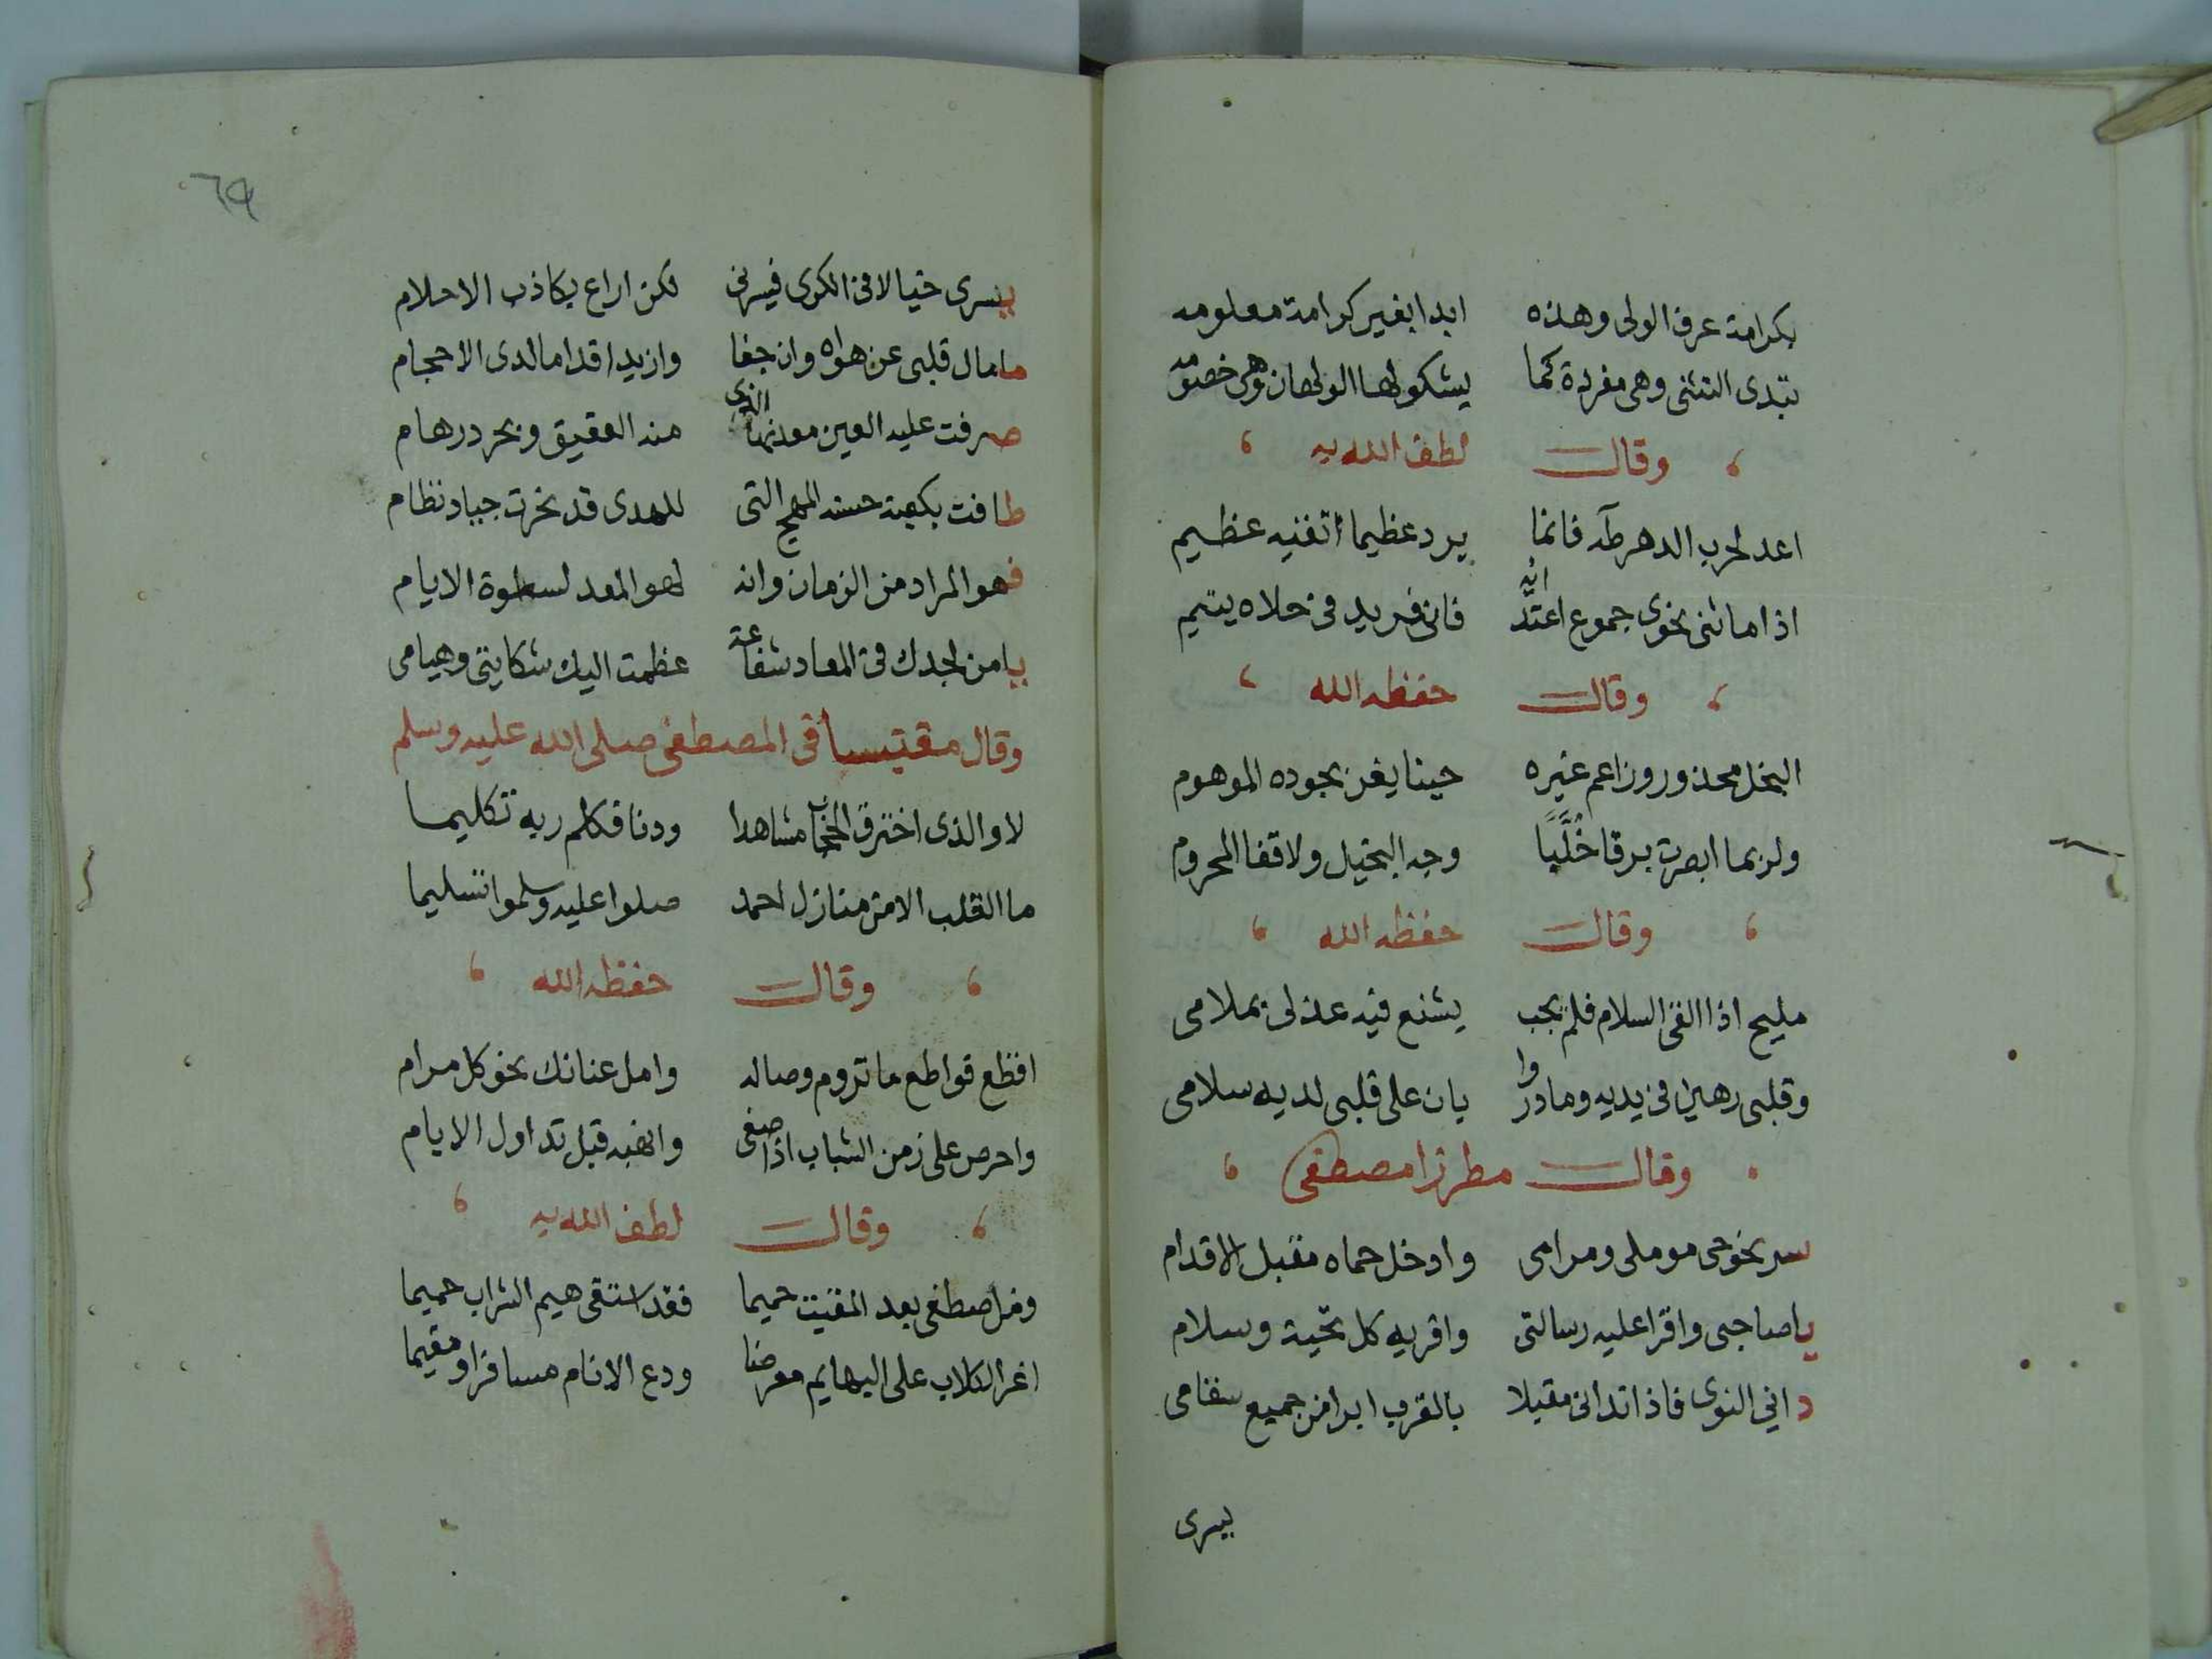 بكرامة عرف الولى وهذه ابدا بغير كرامة معلومه
تبدى التثنى وهى مفردة كما يشكو لها الولهان وهى خصومه
وقال لطف الله به
اعد لحرب الدهر طه فانما يرد عظيما اتقنيه عظيم
اذا ما انثنى نحوى جموع اعتدّ انه فانى فريد فى حلاه يتيم
وقال حفظه الله
البخل محذور وزاعم غيره حينا يغر بجوده الموهوم
ولربما ابصرت برقا خُلَّبًا وجه البخيل ولا قفا المحروم
وقال حفظه الله
مليح اذا القى السلام فلم يجب يشنع فيه عذلى بملامى
وقلبى رهين فى يديه وما دروا بان على قلبى لديه سلامى
وقال مطرزا مصطفى
سر نحو حى موملى ومرامى وادخل حماه مقبل الاقدام
ياصاحبى واقرا عليه رسالتى واقريه كل تحية وسلام
دانى النوى فاذا تدانى مقبلا بالقرب ابرا من جميع سقامى
يسرى
٦٩
يسرى خيالا فى الكرى فيسرنى لكن اراع بكاذب الاحلام
ما مال قلبى عن هواه وان جفا وازيد اقداما لدى الاحجام
صرفت عليه العين معدنها الذى منه العقيق وبحر درهام
طافت بكعبة حسنه المهج التى للهدى قد نحرت جياد نظام
فهو المراد من الزمان وانه لهو المعد لسطوة الايام
يامن لجدك فى المعاد شفاعة عظمت اليك شكايتى وهيامى
وقال مقتبسا فى المصطفى صلى الله عليه وسلم
لا والذى اخترق الحجاب مشاهدا ودنا فكلم ربه تكليما
ما القلب الا من منازل احمد صلوا عليه وسلموا تسليما
وقال حفظه الله
اقطع قواطع ما تروم وصاله وامل عنانك نحو كل مرام
واحرص على زمن الشباب اذا صغى وانهبه قبل تداول الايام
وقال لطف الله به
ومن اصطفى بعد المقيت حميما فقد استقى هيم الشراب حميما
اغر الكلاب على البهايم معرضا ودع الانام مسافرا ومقيما